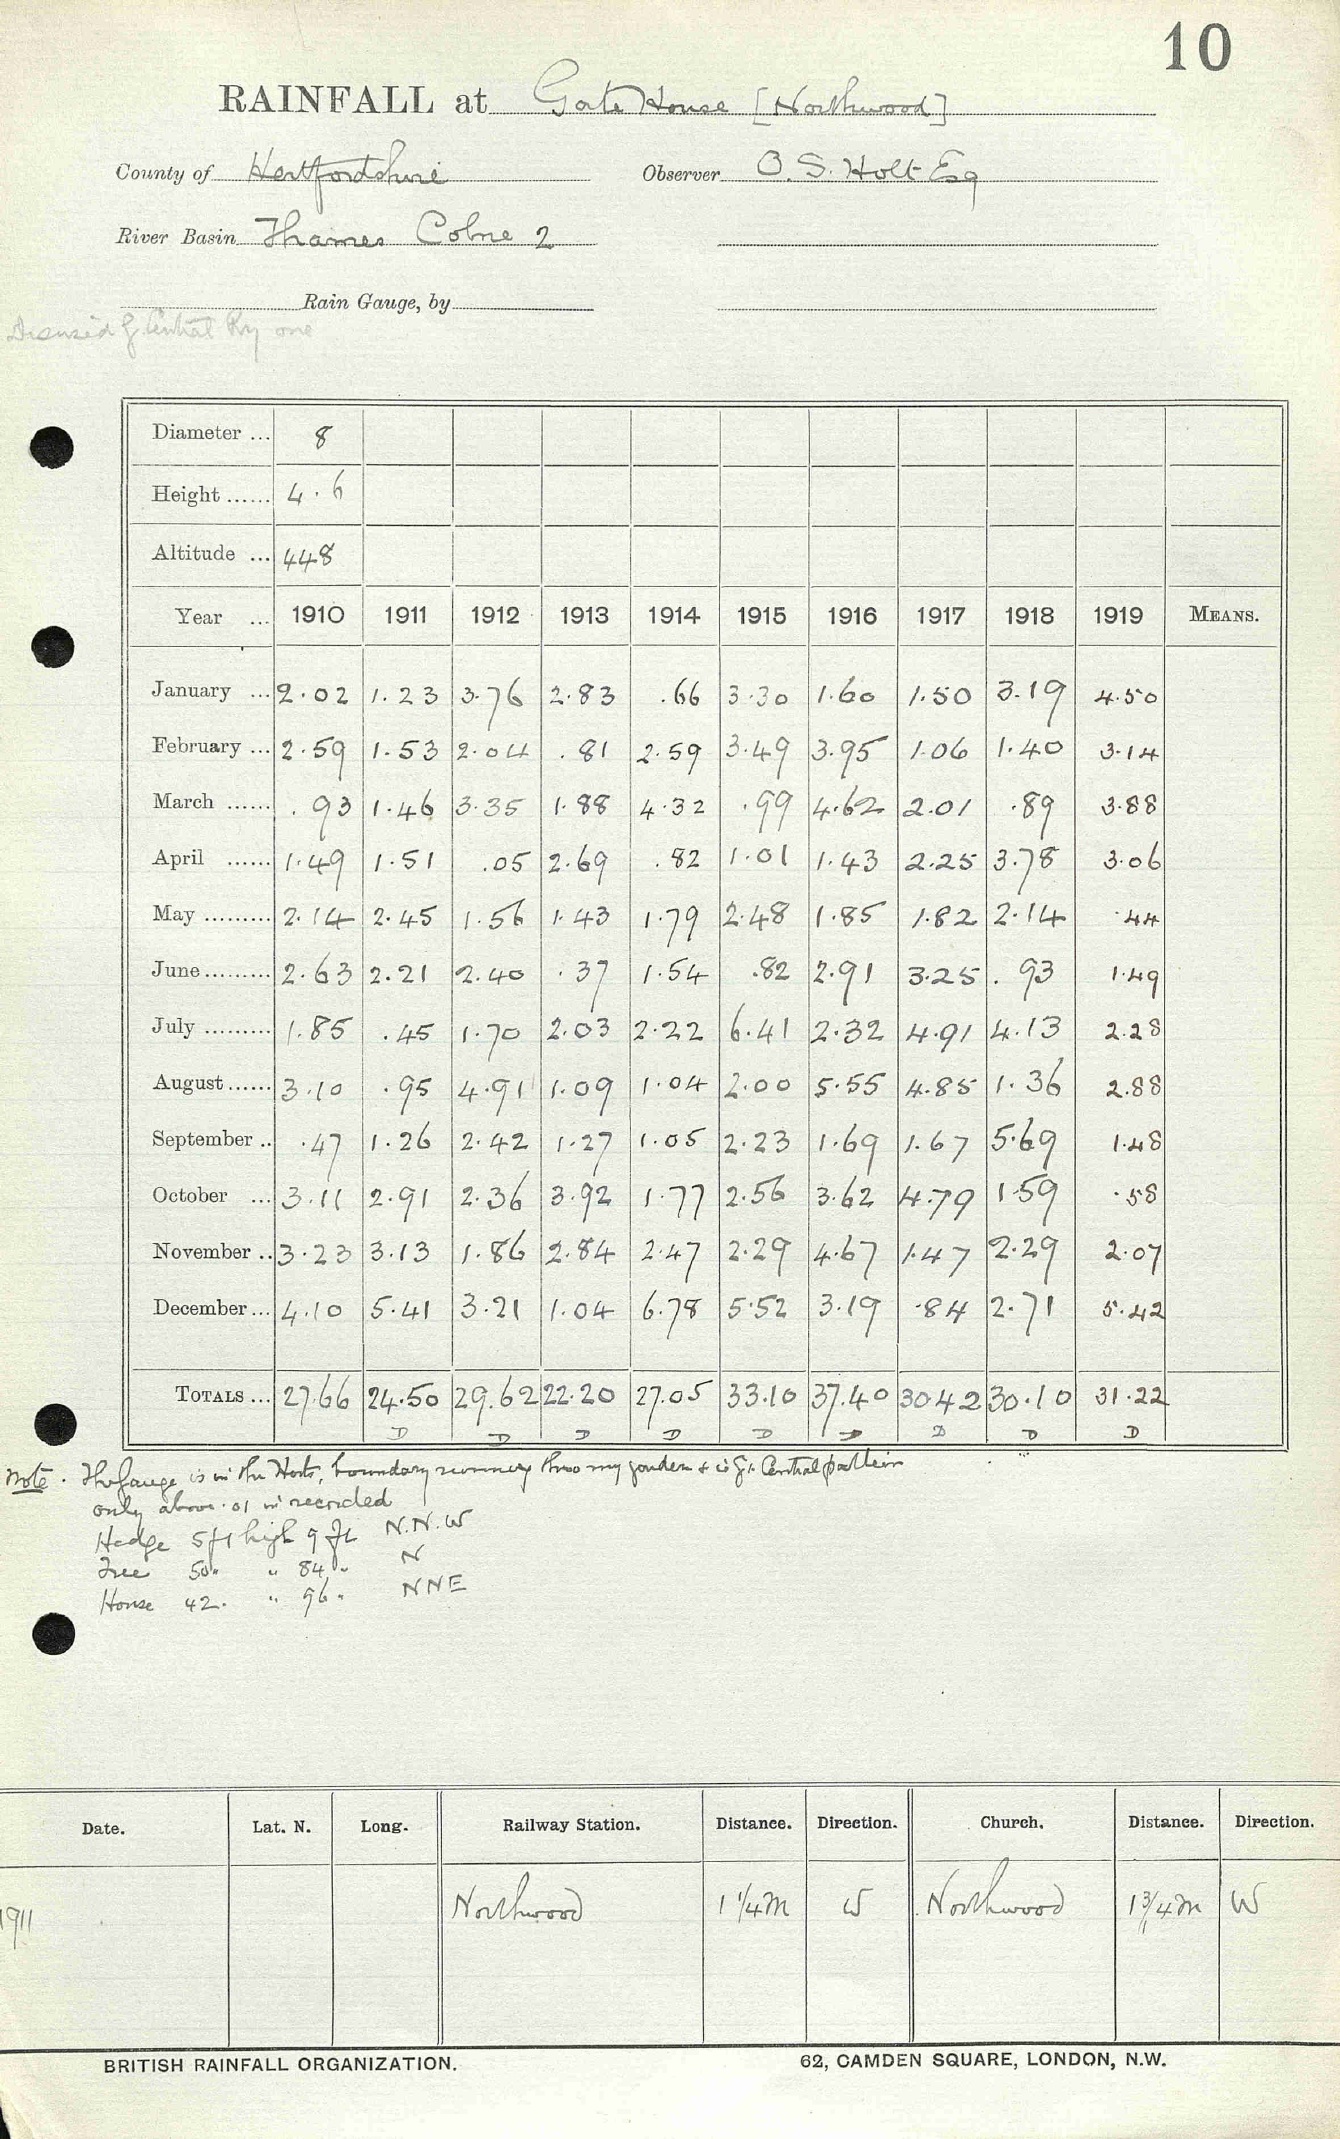 10
RAINFALL at Gate House [Northwood]
County of Hertfordshire Observer O. S. Holt Esq
River Basin Thames Colne 2
Rain Gauge, by
Central Ry one
Diameter ... 8
Height ...... 4.6
Altitude ... 448
Year ... 1910 1911 1912 1913 1914 1915 1916 1917 1918 1919 MEANS.
January ... 2.02 1.23 3.76 2.83 .66 3.30 1.60 1.50 3.19 4.50
February ... 2.59 1.53 2.04 .81 2.59 3.49 3.95 1.06 1.40 3.14
March ...... .93 1.46 3.35 1.88 4.32 .99 4.62 2.01 .89 3.88
April ...... 1.49 1.51 .05 2.69 .82 1.01 1.43 2.25 3.78 3.06
May ......... 2.14 2.45 1.56 1.43 1.79 2.48 1.85 1.82 2.14 .44
June ......... 2.63 2.21 2.40 .37 1.54 .82 2.91 3.25 .93 1.49
July ......... 1.85 .45 1.70 2.03 2.22 6.41 2.32 4.91 4.13 2.28
August ...... 3.10 .95 4.91 1.09 1.04 2.00 5.55 4.85 1.36 2.88
September .. .47 1.26 2.42 1.27 1.05 2.23 1.69 1.67 5.69 1.48
October ... 3.11 2.91 2.36 3.92 1.77 2.56 3.62 4.79 1.59 .58
November .. 3.23 3.13 1.86 2.84 2.47 2.29 4.67 1.47 2.29 2.07
December ... 4.10 5.41 3.21 1.04 6.78 5.52 3.19 .84 2.71 5.42
TOTALS ... 27.66 24.50 29.62 22.20 27.05 33.10 37.40 30.42 30.10 31.22
D D D D D D D D D
Note. The gauge is in the Herts, boundary running thro my garden & is Gt. Central pattern
only above .01 in recorded
Hedge 5ft high 9 ft N.N.W
Tree 50" " 84" N
House 42. " 96" NNE
Date. Lat. N. Long. Railway Station. Distance. Direction. Church. Distance. Direction.
1911 Northwood 1 1/4 m W Northwood 1 3/4 m W
BRITISH RAINFALL ORGANIZATION. 62, CAMDEN SQUARE, LONDON, N.W.